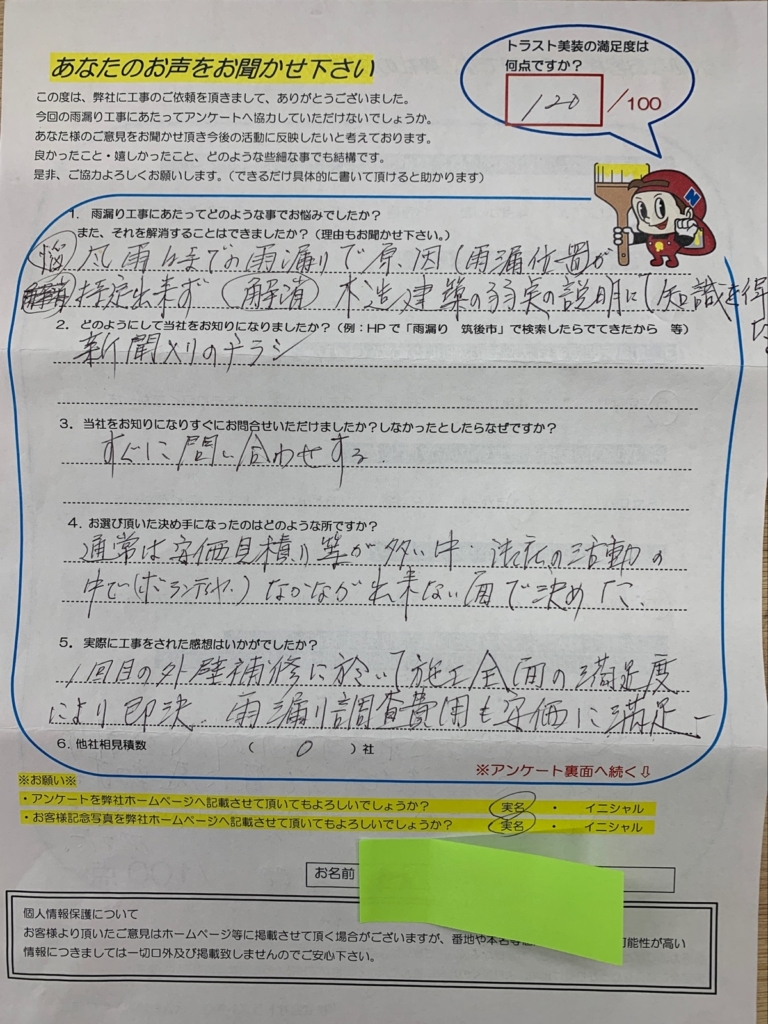 トラスト美装の満足度は
何点ですか？
120 /100
あなたのお声をお聞かせ下さい
この度は、弊社に工事のご依頼を頂きまして、ありがとうございました。
今回の雨漏り工事にあたってアンケートへ協力していただけないでしょうか。
あなた様のご意見をお聞かせ頂き今後の活動に反映したいと考えております。
良かったこと・嬉しかったこと、どのような些細な事でも結構です。
是非、ご協力よろしくお願いします。（できるだけ具体的に書いて頂けると助かります）
N
1. 雨漏り工事にあたってどのような事でお悩みでしたか？
また、それを解消することはできましたか？（理由もお聞かせ下さい。）
悩 風雨時までの雨漏りで原因（雨漏位置が
特定出来ず 解消 木造建築の弱実の説明にて知識を得
た。
2. どのようにして当社をお知りになりましたか？（例：HPで「雨漏り 筑後市」で検索したらでてきたから 等）
新聞入りのチラシ
3. 当社をお知りになりすぐにお問合せいただけましたか？しなかったとしたらなぜですか？
すぐに問い合わせする.
4. お選び頂いた決め手になったのはどのような所ですか？
通常は安価見積り等が多い中、の活動の
中で(ボランティヤ.)なかなか出来ない面で決めた.
5. 実際に工事をされた感想はいかがでしたか？
1回目の外壁補修に於いて施工全面の満足度
により即決. 雨漏り調査費用も安価に満足ー
6. 他社相見積数 （ 0 ）社
※アンケート裏面へ続く⇩
※お願い※
・アンケートを弊社ホームページへ記載させて頂いてもよろしいでしょうか？ 実名 ・ イニシャル
・お客様記念写真を弊社ホームページへ記載させて頂いてもよろしいでしょうか？ 実名 ・ イニシャル
お名前
個人情報保護について
お客様より頂いたご意見はホームページ等に掲載させて頂く場合がございますが、番地や本名等 可能性が高い
情報につきましては一切口外及び掲載致しませんのでご安心下さい。